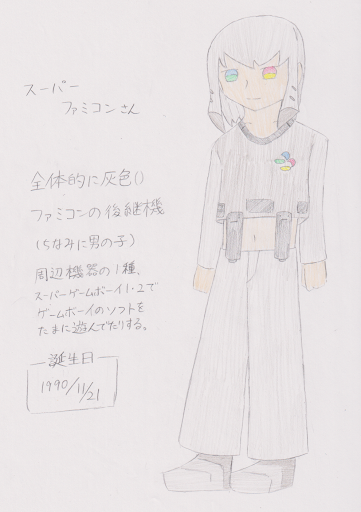 スーパー
ファミコンさん
全体的に灰色()
ファミコンの後継機
(ちなみに男の子)
周辺機器の1種、
スーパーゲームボーイ1・2で
ゲームボーイのソフトを
たまに遊んでたりする。
誕生日
1990/11/21